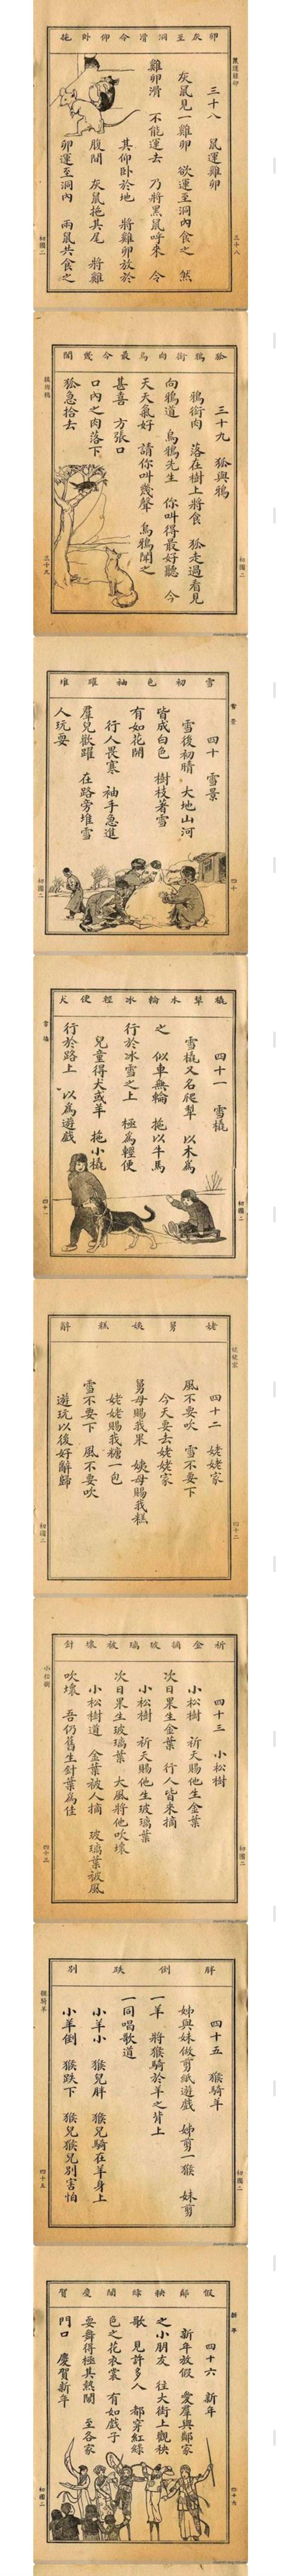 卵灰至洞滑令仰卧拖
三十八
三十八 鼠運雞卵
灰鼠見一雞卵 欲運至洞內食之 然
雞卵滑 不能運去 乃將黑鼠呼來 令
其仰卧於地 將雞卵放於
腹間 灰鼠拖其尾 將雞
卵運至洞內 兩鼠共食之
初國二
狐鴉銜肉烏最今幾聞
初國二
三十九 狐與鴉
鴉銜肉 落在樹上將食 狐走過看見
向鴉道 烏鴉先生 你叫得最好聽 今
天天氣好 請你叫幾聲 烏鴉聞之
甚喜 方張口
口內之肉落下
狐急拾去
三十九
雪初色袖躍堆
雪景
四十
四十 雪景
雪後初晴 大地山河
皆成白色 樹枝著雪
有如花開
行人畏寒 袖手急進
羣兒歡躍 在路旁堆雪
人玩耍
初國二
橇犂木輪冰輕便犬
初國二
四十一 雪橇
雪橇又名爬犂 以木為
之 似車無輪 拖以牛馬
行於冰雪之上 極為輕便
兒童得犬或羊 拖小橇
行於路上 以為遊戲
雪橇
四十一
姥舅姨糕辭
姥姥家
四十二
四十二 姥姥家
風不要吹 雪不要下
今天要去姥姥家
舅母賜我果 姨母賜我糕
姥姥賜我糖一包
雪不要下 風不要吹
遊玩以後好辭歸
初國二
祈金摘玻璃被壞針
初國二
四十三 小松樹
小松樹 祈天賜他生金葉
次日果生金葉 行人皆來摘
小松樹 祈天賜他生玻璃葉
次日果生玻璃葉 大風將他吹壞
小松樹道 金葉被人摘 玻璃葉被風
吹壞 吾仍舊生針葉為佳
小松樹
四十三
胖倒跌別
初國二
四十五 猴騎羊
姊與妹做剪紙遊戲 姊剪一猴 妹剪
一羊 將猴騎於羊之背上
一同唱歌道
小羊小 猴兒胖 猴兒騎在羊身上
小羊倒 猴跌下 猴兒猴兒別害怕
猴騎羊
四十五
假鄰秧綠鬧慶賀
新年
四十六
四十六 新年
新年放假 愛羣與鄰家
之小朋友 往大街上觀秧
歌 見許多人 都穿紅綠
色之花衣裳 有如戲子
耍舞得極其熱鬧 至各家
門口 慶賀新年
初國二